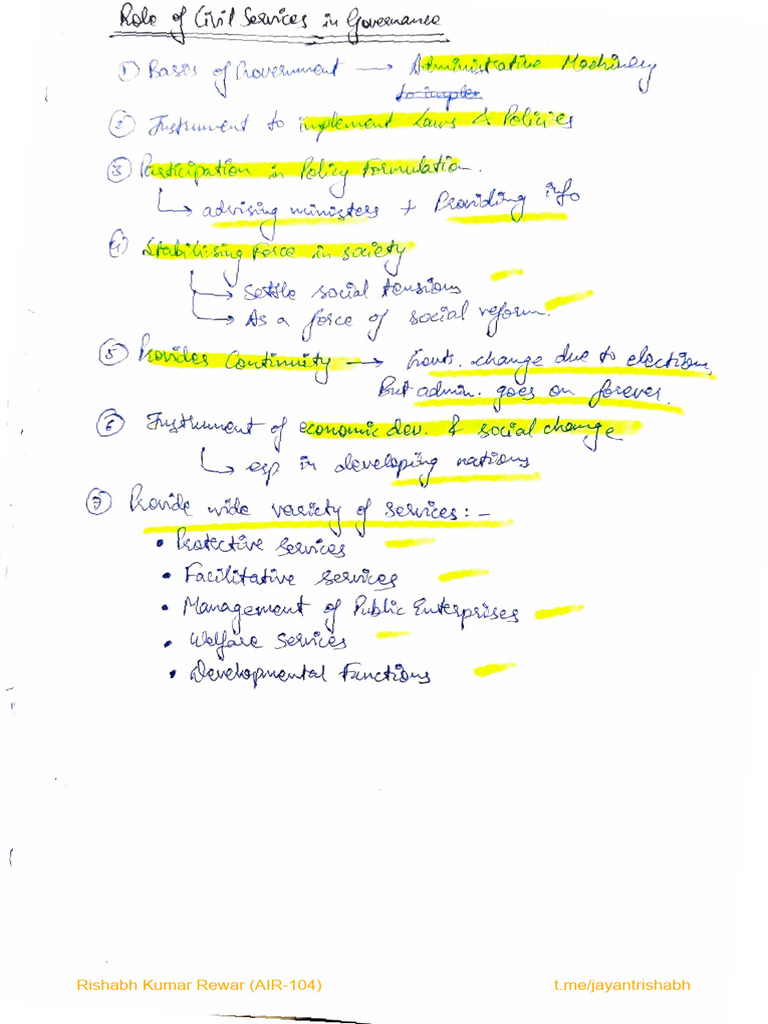 Role of Civil Services in Governance
① Basis of Government → Administrative Machinery
to implem
② Instrument to implement Laws & Policies
③ Participation in Policy Formulation.
↳ advising ministers + Providing info
④ Stabilising Force in society
→ Settle social tensions
→ As a force of social reform.
⑤ Provides Continuity → Govts. change due to elections,
But admin. goes on forever.
⑥ Instrument of economic dev. & social change
↳ esp in developing nations
⑦ Provide wide variety of services:-
• Protective services
• Facilitative services
• Management of Public Enterprises
• Welfare Services
• Developmental Functions
Rishabh Kumar Rewar (AIR-104) t.me/jayantrishabh